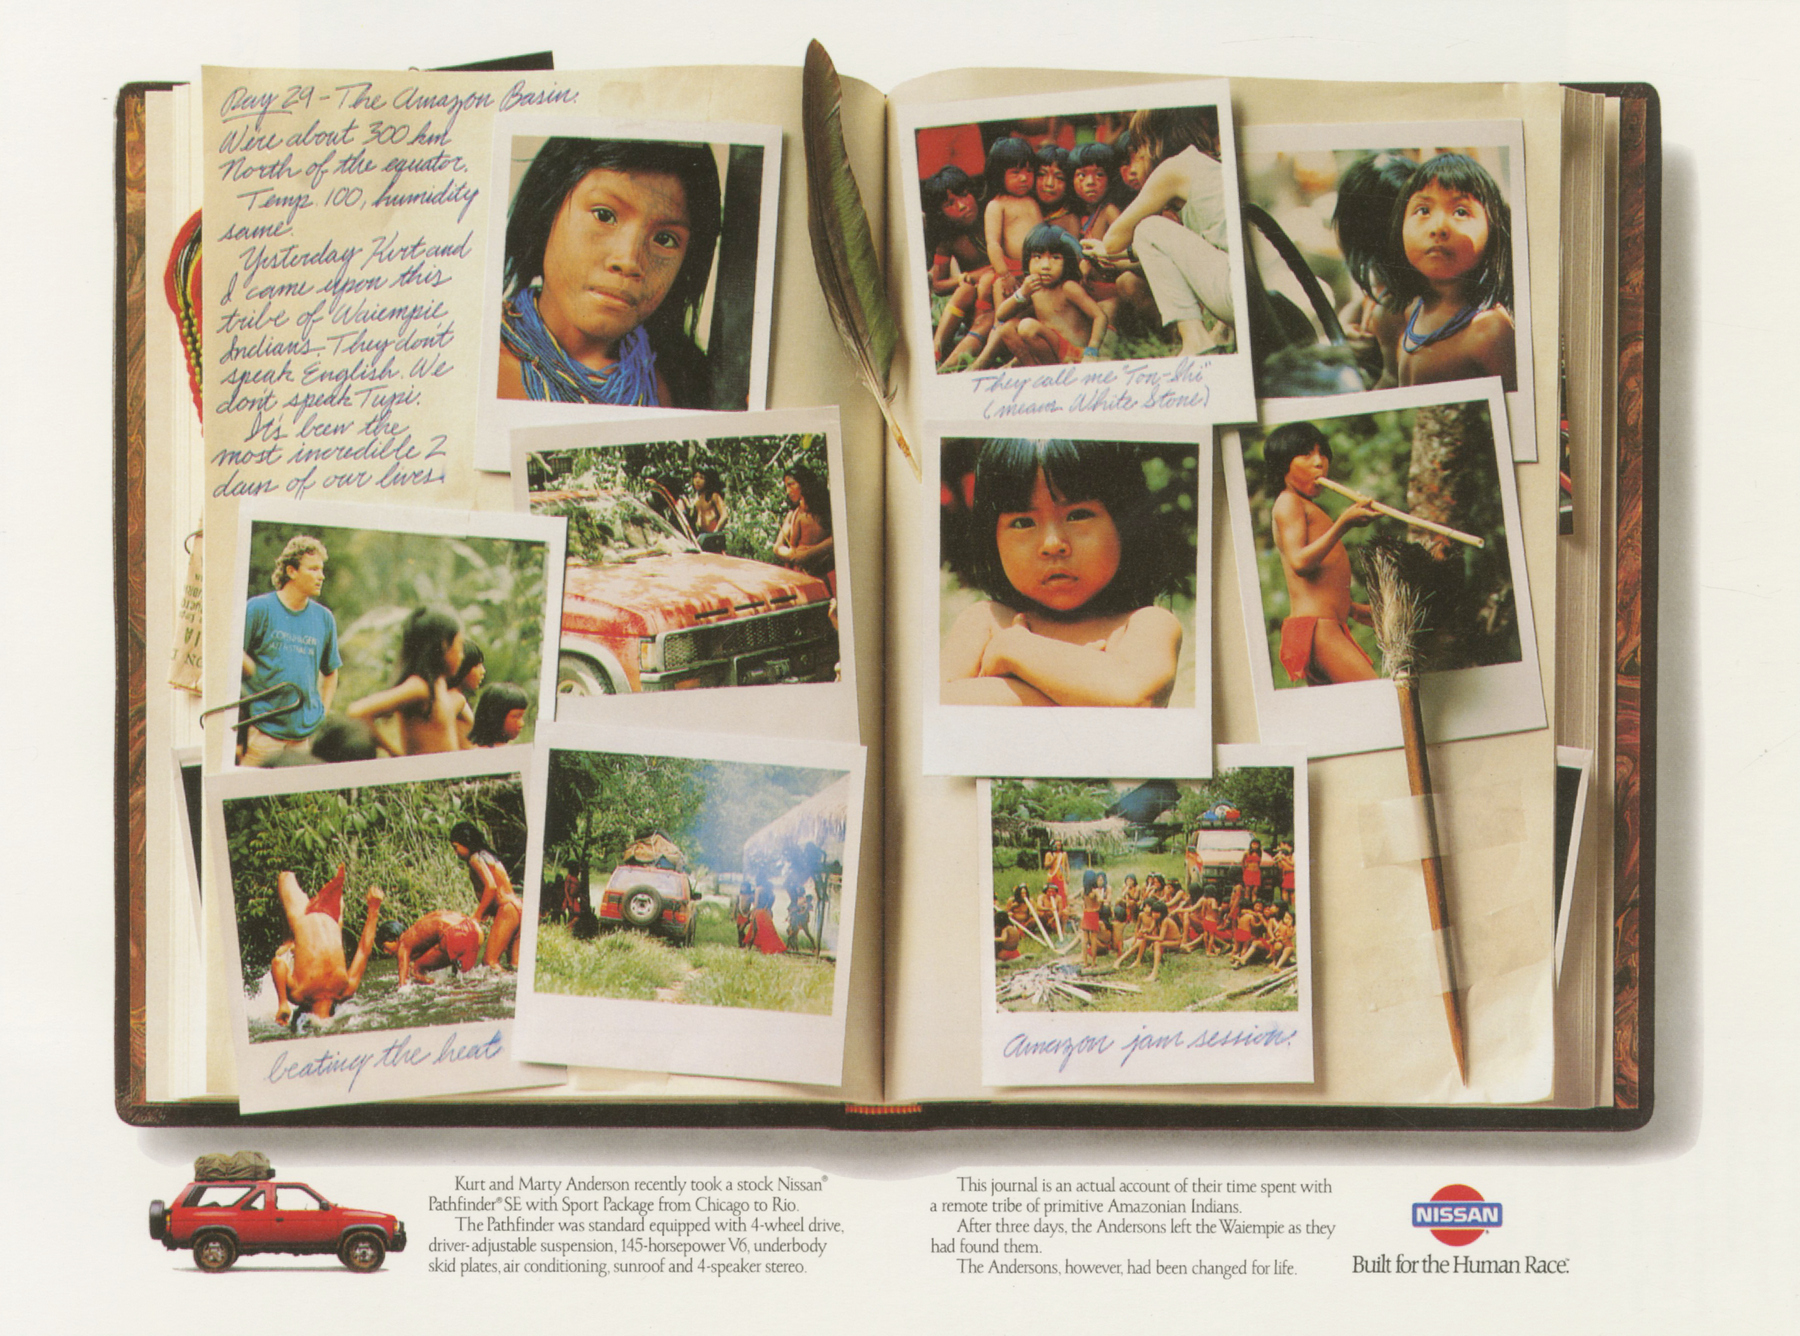 Day 29 - The Amazon Basin.
We're about 300 km
North of the equator.
Temp. 100, humidity
same.
Yesterday Kurt and
I came upon this
tribe of Waiempie
Indians. They don't
speak English. We
don't speak Tupi.
It's been the
most incredible 2
days of our lives.
They call me "Ton-Shi"
(means White Stone)
beating the heat
Amazon jam session.
Kurt and Marty Anderson recently took a stock Nissan®
Pathfinder® SE with Sport Package from Chicago to Rio.
The Pathfinder was standard equipped with 4-wheel drive,
driver-adjustable suspension, 145-horsepower V6, underbody
skid plates, air conditioning, sunroof and 4-speaker stereo.
This journal is an actual account of their time spent with
a remote tribe of primitive Amazonian Indians.
After three days, the Andersons left the Waiempie as they
had found them.
The Andersons, however, had been changed for life.
NISSAN
Built for the Human Race.™